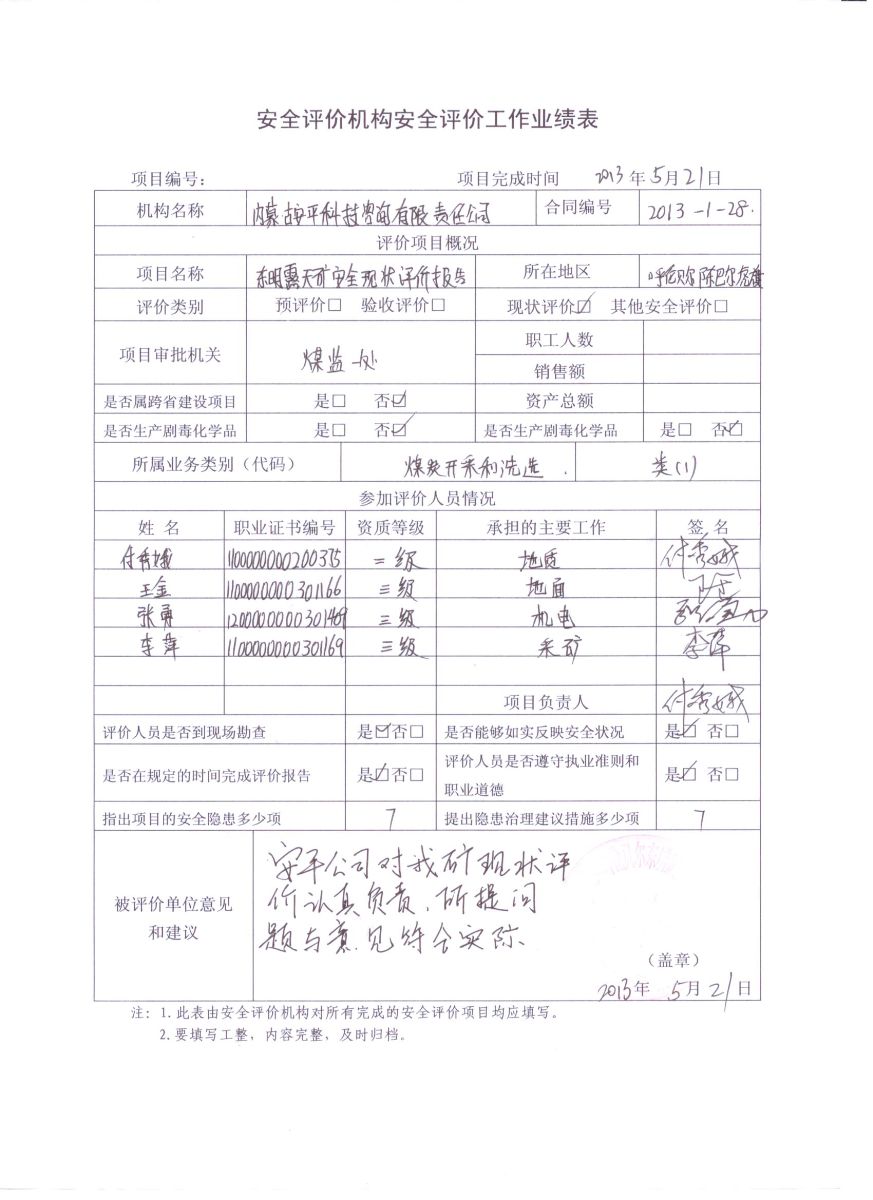 安全评价机构安全评价工作业绩表
项目编号： 项目完成时间 2013年5月21日
机构名称 内蒙古安平科技咨询有限责任公司 合同编号 2013-1-28.
评价项目概况
项目名称 东明露天矿安全现状评价报告 所在地区 呼伦贝尔陈巴尔虎旗
评价类别 预评价□ 验收评价□ 现状评价☑ 其他安全评价□
项目审批机关 煤监一处 职工人数
销售额
是否属跨省建设项目 是□ 否☑ 资产总额
是否生产剧毒化学品 是□ 否☑ 是否生产剧毒化学品 是□ 否☑
所属业务类别（代码） 煤炭开采和洗选. 类(1)
参加评价人员情况
姓 名 职业证书编号 资质等级 承担的主要工作 签 名
付秀娥 1100000000200375 二级 地质 付秀娥
王金 1100000000301166 三级 地面
张勇 1200000000301469 三级 机电
李萍 1100000000301169 三级 采矿 李萍
项目负责人 付秀娥
评价人员是否到现场勘查 是☑否□ 是否能够如实反映安全状况 是☑ 否□
是否在规定的时间完成评价报告 是☑否□ 评价人员是否遵守执业准则和
职业道德 是☑ 否□
指出项目的安全隐患多少项 7 提出隐患治理建议措施多少项 7
被评价单位意见
和建议
安平公司对我矿现状评
价认真负责，所提问
题与意见符合实际
（盖章）
2013年5月21日
注：1.此表由安全评价机构对所有完成的安全评价项目均应填写。
2.要填写工整，内容完整，及时归档。